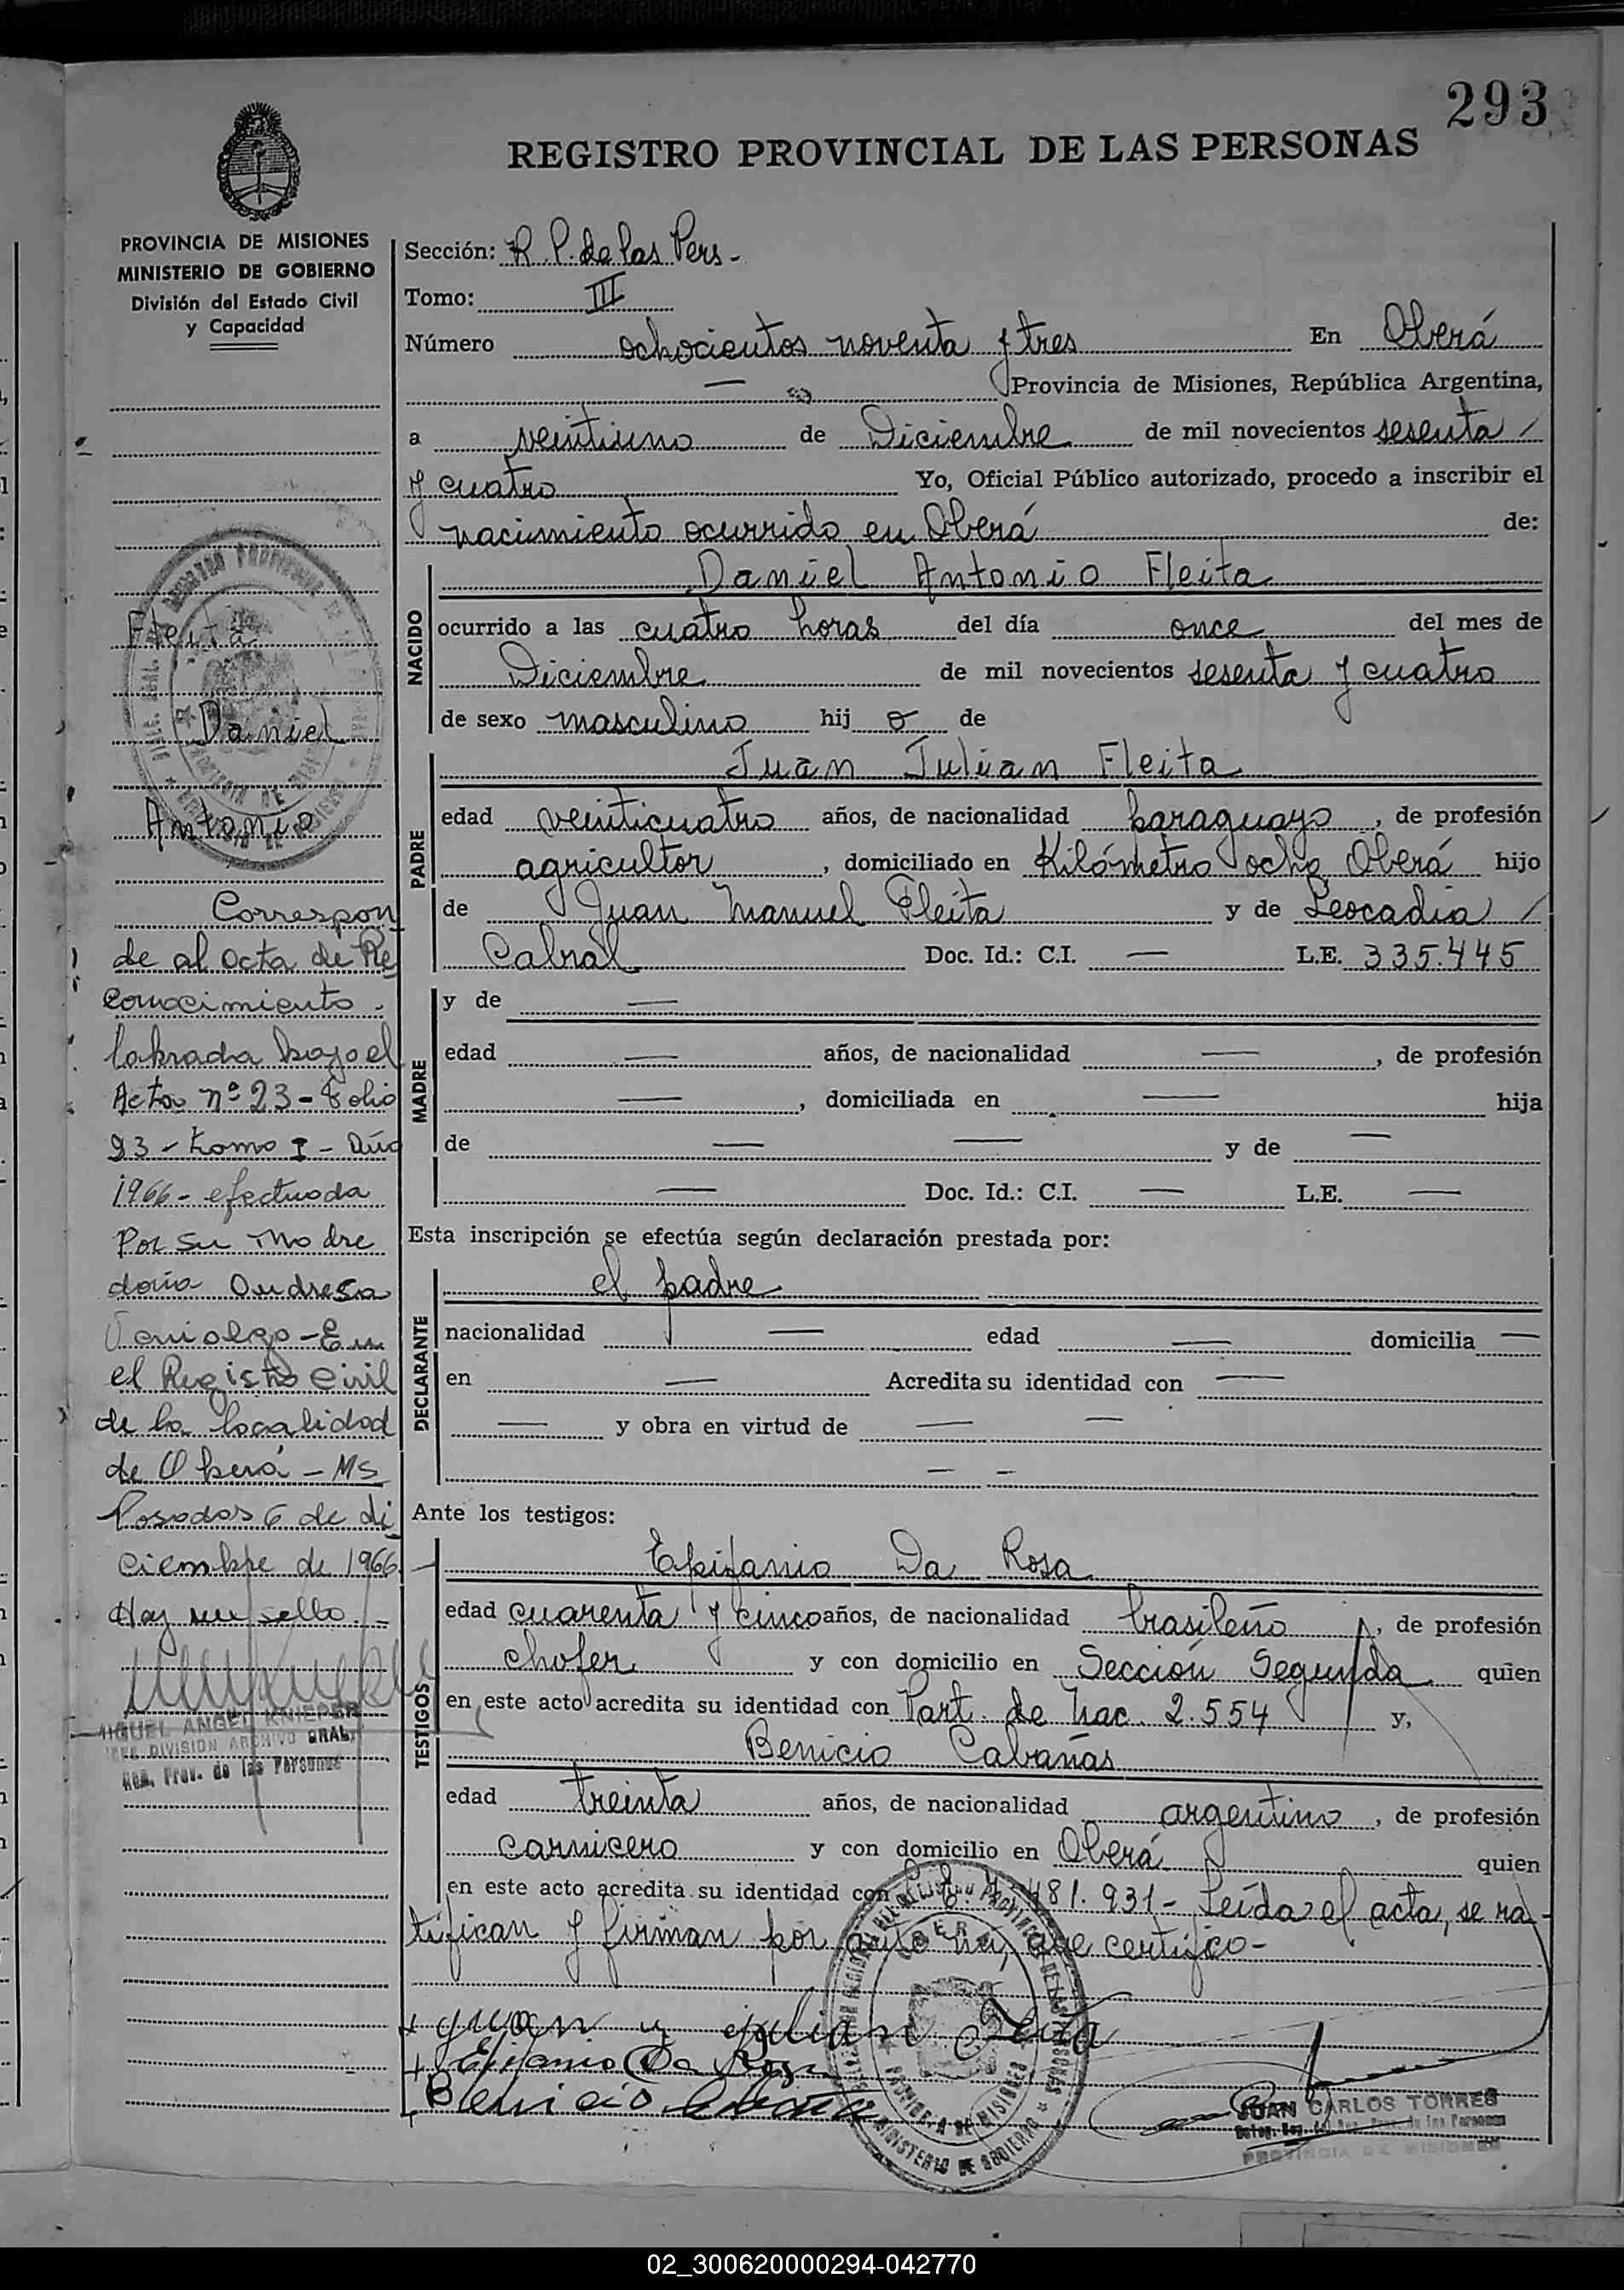 293
REGISTRO PROVINCIAL DE LAS PERSONAS
PROVINCIA DE MISIONES
MINISTERIO DE GOBIERNO
División del Estado Civil
y Capacidad
Sección: R. P. de las Pers.-
Tomo: III
Número ochocientos noventa y tres En Oberá
— Provincia de Misiones, República Argentina,
a veintiuno de Diciembre de mil novecientos sesenta /
y cuatro Yo, Oficial Público autorizado, procedo a inscribir el
nacimiento ocurrido en Oberá de:
NACIDO
Daniel Antonio Fleita
ocurrido a las cuatro horas del día once del mes de
Diciembre de mil novecientos sesenta y cuatro
de sexo masculino hij o de
PADRE
Juan Julian Fleita
edad veinticuatro años, de nacionalidad paraguayo, de profesión
agricultor, domiciliado en Kilómetro ocho Oberá hijo
de Juan Manuel Fleita y de Leocadia /
Cabral Doc. Id.: C.I. — L.E. 335.445
MADRE
y de —
edad — años, de nacionalidad —, de profesión
—, domiciliada en — hija
de — — y de —
— Doc. Id.: C.I. — L.E. —
Esta inscripción se efectúa según declaración prestada por:
DECLARANTE
el padre
nacionalidad — edad — domicilia —
en — Acredita su identidad con —
— y obra en virtud de — —
— —
Ante los testigos:
TESTIGOS
Epifanio Da Rosa
edad cuarenta y cinco años, de nacionalidad brasileño, de profesión
chofer y con domicilio en Sección Segunda quien
en este acto acredita su identidad con Part. de nac. 2.554 y,
Benicio Cabañas
edad treinta años, de nacionalidad argentino, de profesión
carnicero y con domicilio en Oberá quien
en este acto acredita su identidad con 481.931- Leída el acta, se ra-
tifican y firman por ante mí, que certifico-
+ Juan y Julian Fleita
+ Epifanio Da Rosa
Benicio
JUAN CARLOS TORRES
PROVINCIA DE MISIONES
PROVINCIA DE MISIONES
MINISTERIO DE GOBIERNO
Fleita
Daniel
Antonio
Correspon
de al acta de Re
conocimiento -
labrada bajo el
Acta nº 23 - Folio
23 - tomo I - Año
1966 - efectuada
Por su Madre
doña Andresa
- En
el Registro Civil
de la localidad
de Oberá - MS
Posadas 6 de di
ciembre de 1966
Hay un sello -
MIGUEL ANGEL KNIEPER
JEFE DIVISION ARCHIVO GRAL.
Reg. Prov. de las Personas
02_300620000294-042770